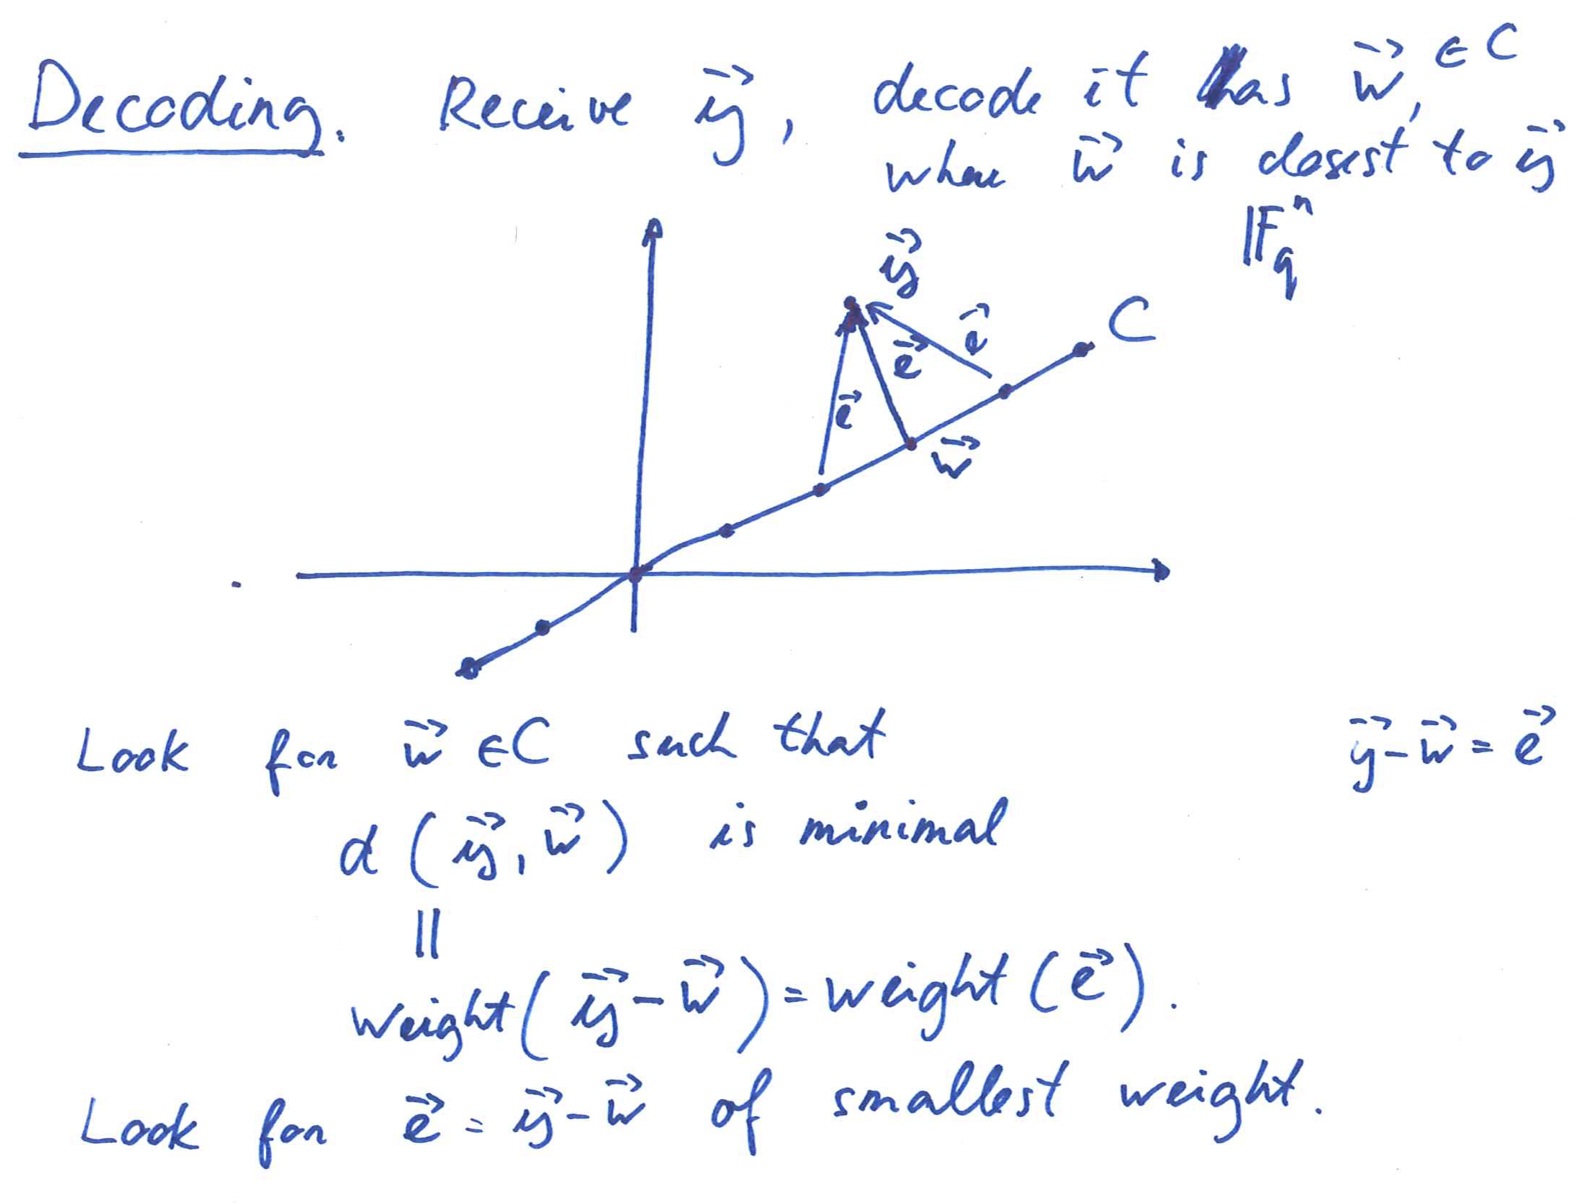 Decoding. Receive y⃗, decode it as w⃗, ∈ C
where w⃗ is closest to y⃗
𝔽_q^n
y⃗
C
e⃗
e⃗
e⃗
w⃗
Look for w⃗ ∈ C such that
y⃗ - w⃗ = e⃗
d(y⃗, w⃗) is minimal
||
weight(y⃗ - w⃗) = weight(e⃗).
Look for e⃗ = y⃗ - w⃗ of smallest weight.